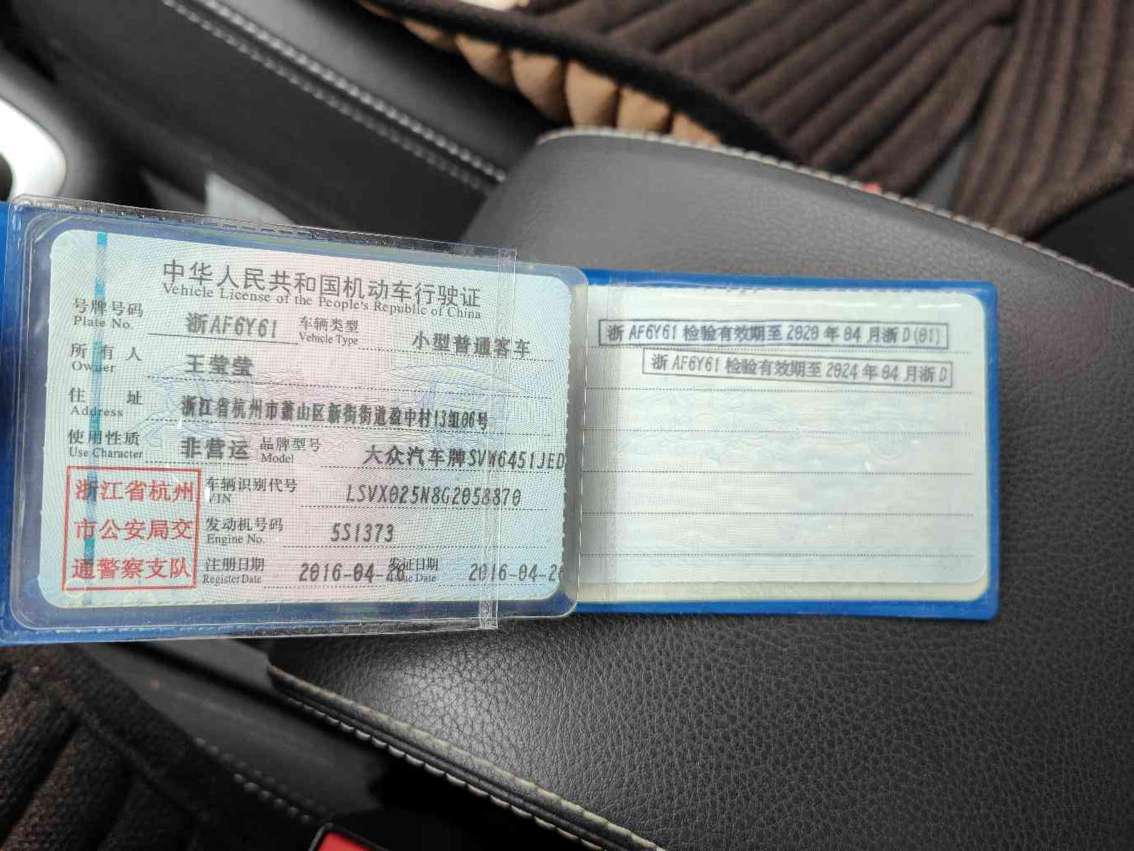 中华人民共和国机动车行驶证
Vehicle License of the People's Republic of China
号牌号码 浙AF6Y61 车辆类型 小型普通客车
Plate No. Vehicle Type
所有人 王莹莹
Owner
住址 浙江省杭州市萧山区新街街道盈中村13组06号
Address
使用性质 非营运 品牌型号 大众汽车牌SVW6451JED
Use Character Model
浙江省杭州
市公安局交
通警察支队
车辆识别代号 LSVX025N8G2058870
VIN
发动机号码 5S1373
Engine No.
注册日期 2016-04-26 发证日期 2016-04-26
Register Date Issue Date
浙AF6Y61检验有效期至2020年04月浙D(01)
浙AF6Y61检验有效期至2024年04月浙D